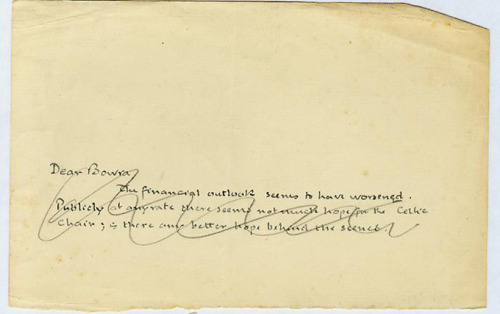 Dear Bowra,
The financial outlook seems to have worsened.
Publicly at any rate there seems not much hope for the Celtic
Chair; is there any better hope behind the scenes